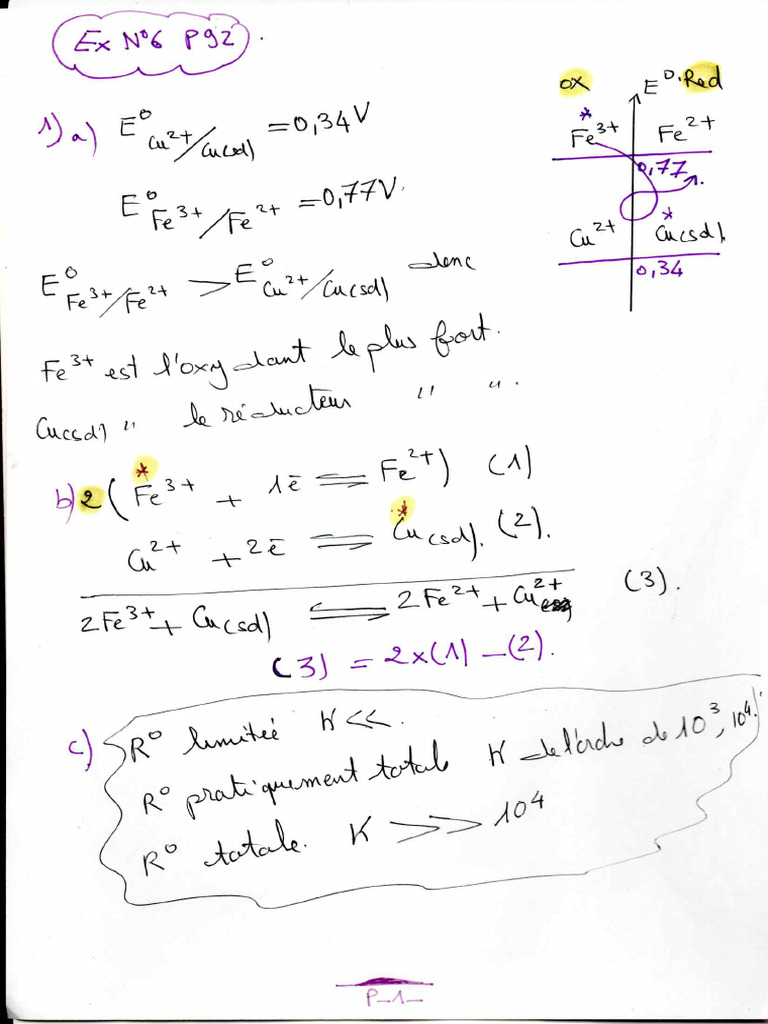 Ex N°6 P92.
1) a) E° Cu²⁺/Cu(sd) = 0,34V
E° Fe³⁺/Fe²⁺ = 0,77V.
E° Fe³⁺/Fe²⁺ > E° Cu²⁺/Cu(sd) donc
Fe³⁺ est l'oxydant le plus fort.
Cu(sd) " le réducteur " ".
ox E° Red
* Fe³⁺ Fe²⁺
0,77
Cu²⁺ * Cu(sd)
0,34
b) 2 ( * Fe³⁺ + 1ē ⇌ Fe²⁺) (1)
Cu²⁺ + 2ē ⇌ * Cu(sd). (2).
2Fe³⁺ + Cu(sd) ⇌ 2Fe²⁺ + Cu²⁺ (3).
(3) = 2×(1) – (2).
c) R° limitée K <<.
R° pratiquement totale K de l'ordre de 10³, 10⁴.
R° totale. K >> 10⁴
P_1_